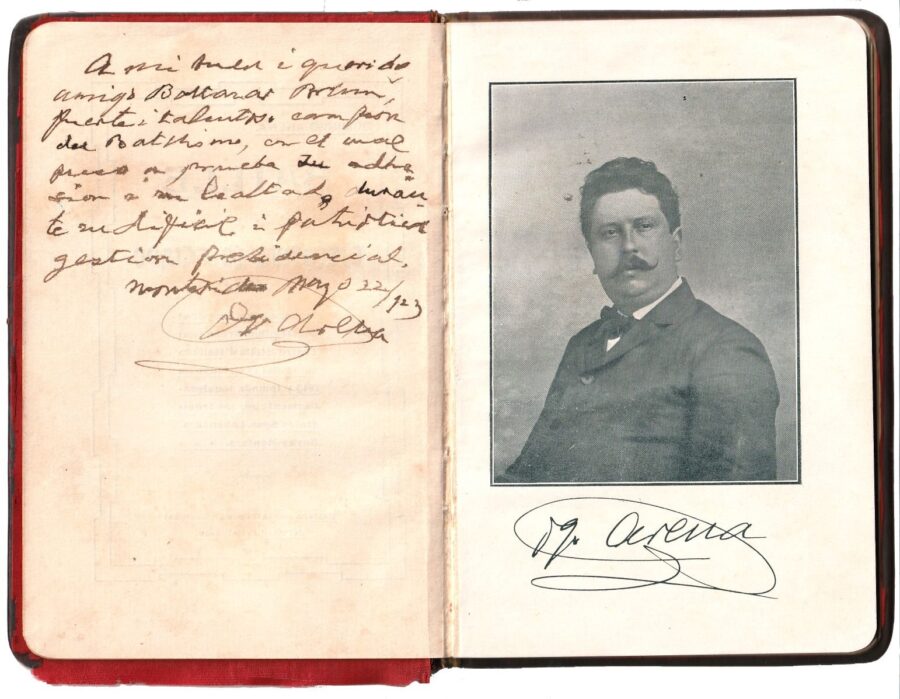 A mi buen i querido
amigo Baltasar Brum,
fuerte i talentoso campeon
del Batllismo, con el cual
puso a prueba su adhe
sion i su lealtad, duran
te su dificil i patriotica
gestion presidencial.
Montevideo Mayo 22/923
Dgo Arena
Dgo. Arena